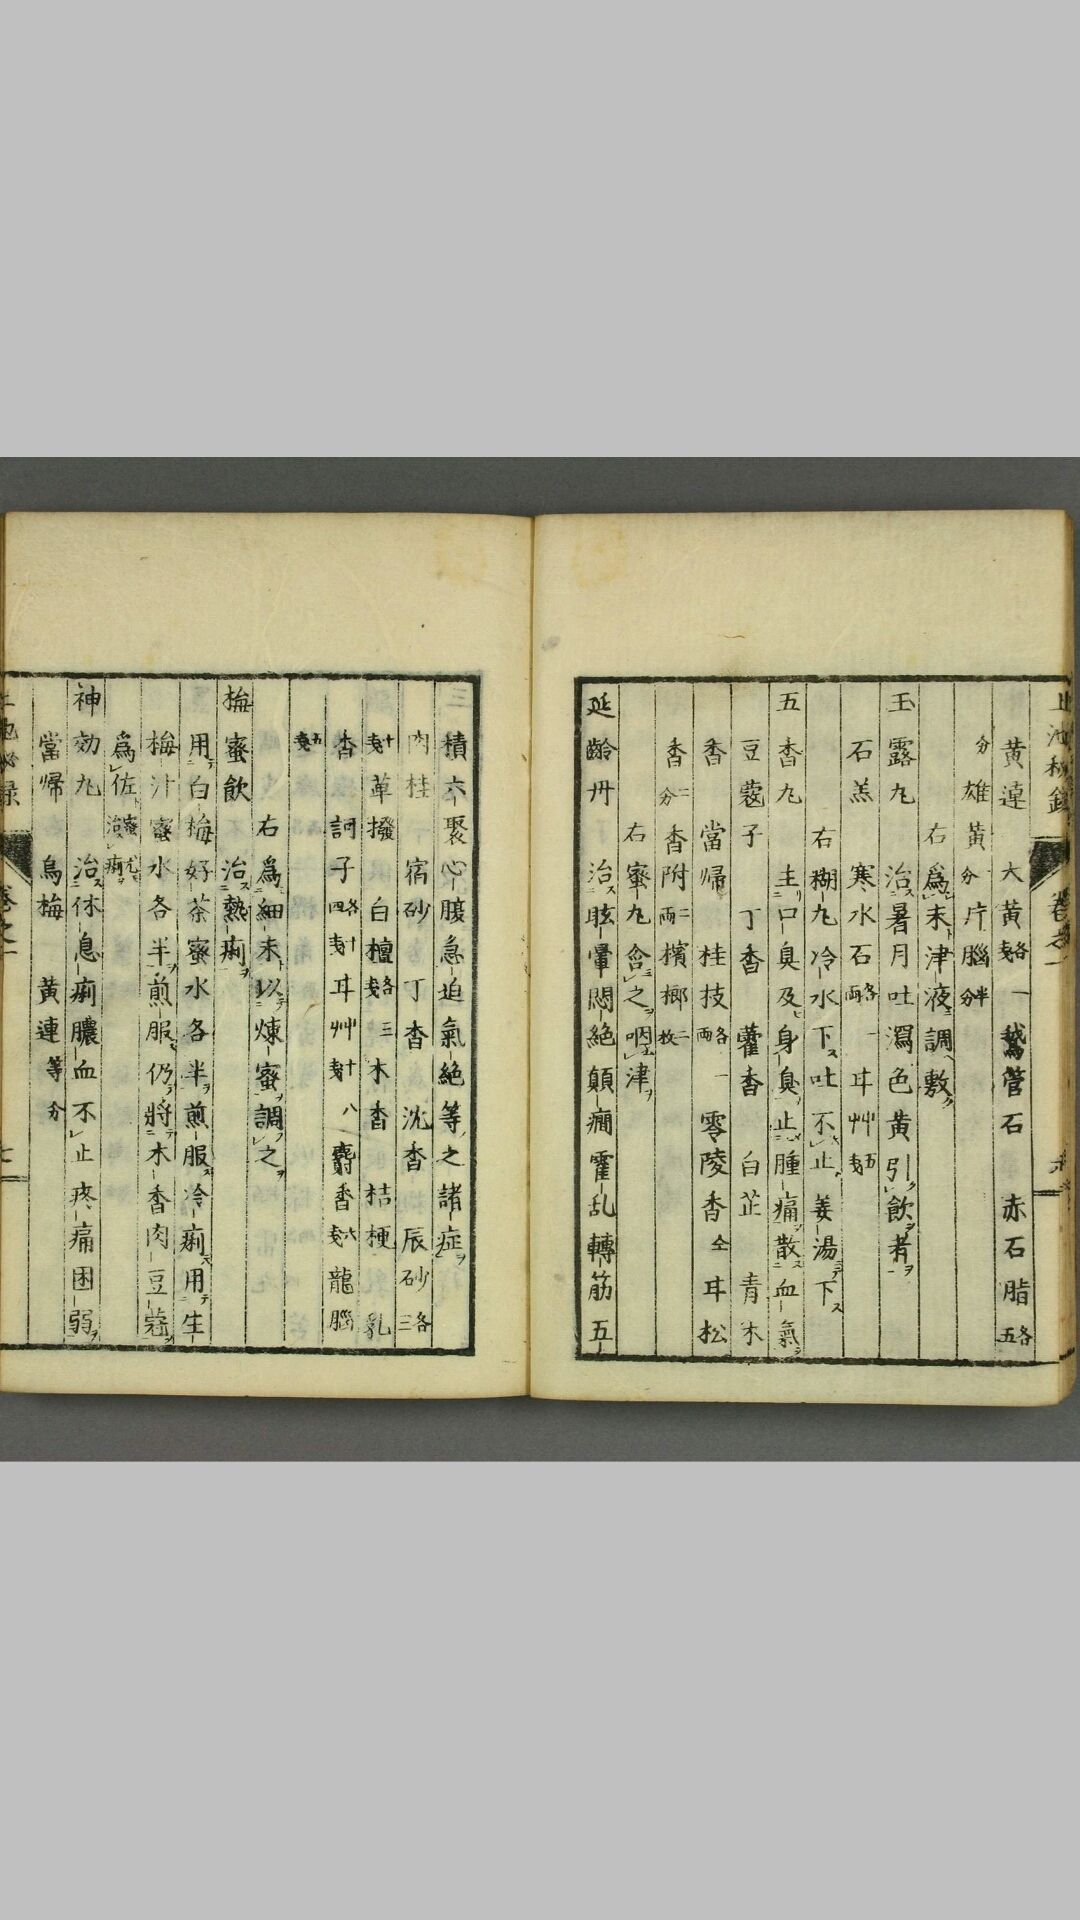 黃連　大黃各一戔　鵞管石　赤石脂各五
分　雄黃一分　片腦半分
右爲末津液調敷
玉露丸　治暑月吐瀉色黃引飲者
石羔　寒水石各一両　耳艸五戔
右糊丸冷水下吐不止姜湯下
五香丸　主口臭及身臭止腫痛散血氣
豆蔻子　丁香　藿香　白芷　青木
香　當帰　桂枝各一両　零陵香仝　耳松
香二分　香附二両　檳榔二枚
右蜜丸含之咽津
延齡丹　治眩暈悶絶顛癇霍乱轉筋五
積六聚心腹急迫氣絶等之諸症
肉桂　宿砂　丁香　沈香　辰砂各三
十戔　蓽撥　白檀各三戔　木香　桔梗　乳
香　訶子各四十戔　耳艸十八戔　麝香六戔　龍腦
五戔
右爲細末以煉蜜調之
梅蜜飲　治熱痢
用白梅好茶蜜水各半煎服冷痢用生
梅汁蜜水各半煎服仍將木香肉豆蔻
爲佐
神効丸　治休息痢膿血不止疼痛困弱
當帰　烏梅　黃連等分